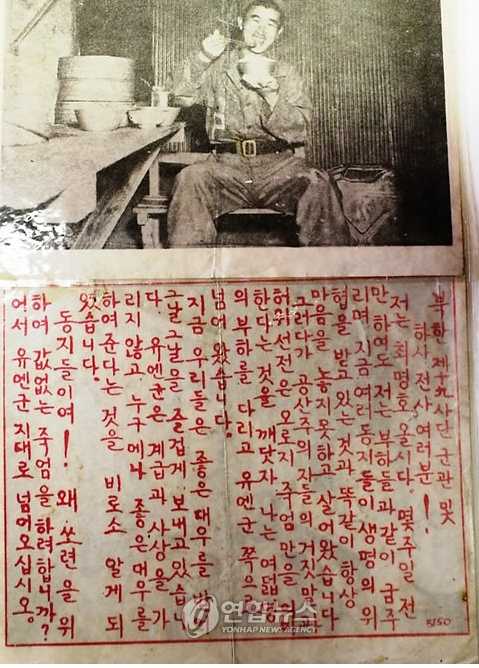 북한 제十九사단 군관 및
하사 전사 여러분!
저는 최명호 올시다. 몇주일 전
만 하여도 저는 부하들과 같이 굼주
리며 지금 여러 동지들이 생명의 위
협을 받고 있는 것과 똑같이 항상
마음을 놓지 못하고 살어왔습니다
그러다가 공산주의자들의 거짓말
허위선전은 오로지 주엄만을
한다는 것을 깨닫자 나는 여덟
의 부하를 다리고 유엔군 쪽으로
넘어 왔습니다.
지금 우리들은 좋은 대우를
그날을 즐겁게 보내고 있습니
다. 유엔군은 계급과 사상을 가
리지 않고 누구에나 좋은 대우를
하여 준다는 것을 비로소 알게 되
었습니다.
동지들이여! 왜 쏘련을 위
하여 값없는 죽엄을 하려합니까?
어서 유엔군 지대로 넘어오십시옹
5150
연합뉴스
YONHAP NEWS AGENCY